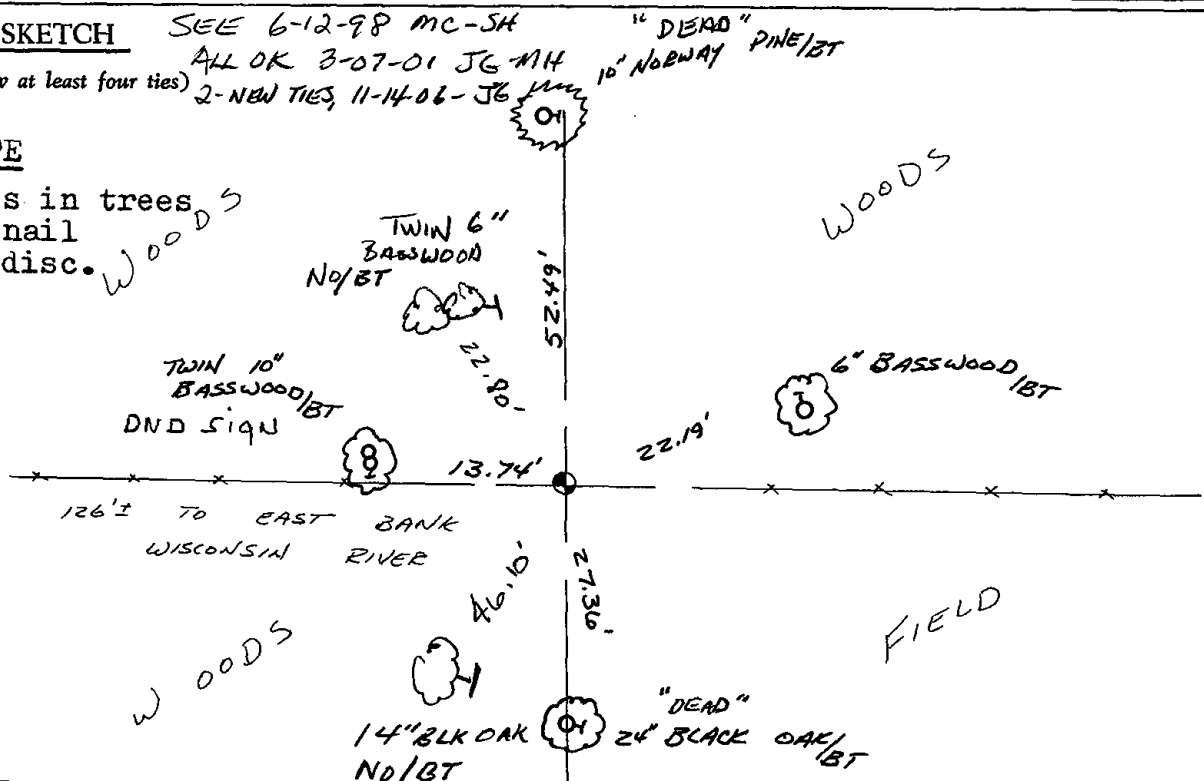 SKETCH SEE 6-12-98 MC-SH
ALL OK 3-07-01 JG-MH
at least four ties) 2-NEW TIES, 11-14-06-JG
"DEAD"
10" NORWAY PINE/BT
s in trees
nail
disc.
WOODS
WOODS
TWIN 6"
BASSWOOD
NO/BT
52.49'
22.80'
TWIN 10"
BASSWOOD/BT
DND SIGN
6" BASSWOOD/BT
22.19'
13.74'
126'± TO EAST BANK
WISCONSIN RIVER
46.10'
27.36'
FIELD
WOODS
"DEAD"
14" BLK OAK
NO/BT
24" BLACK OAK/BT